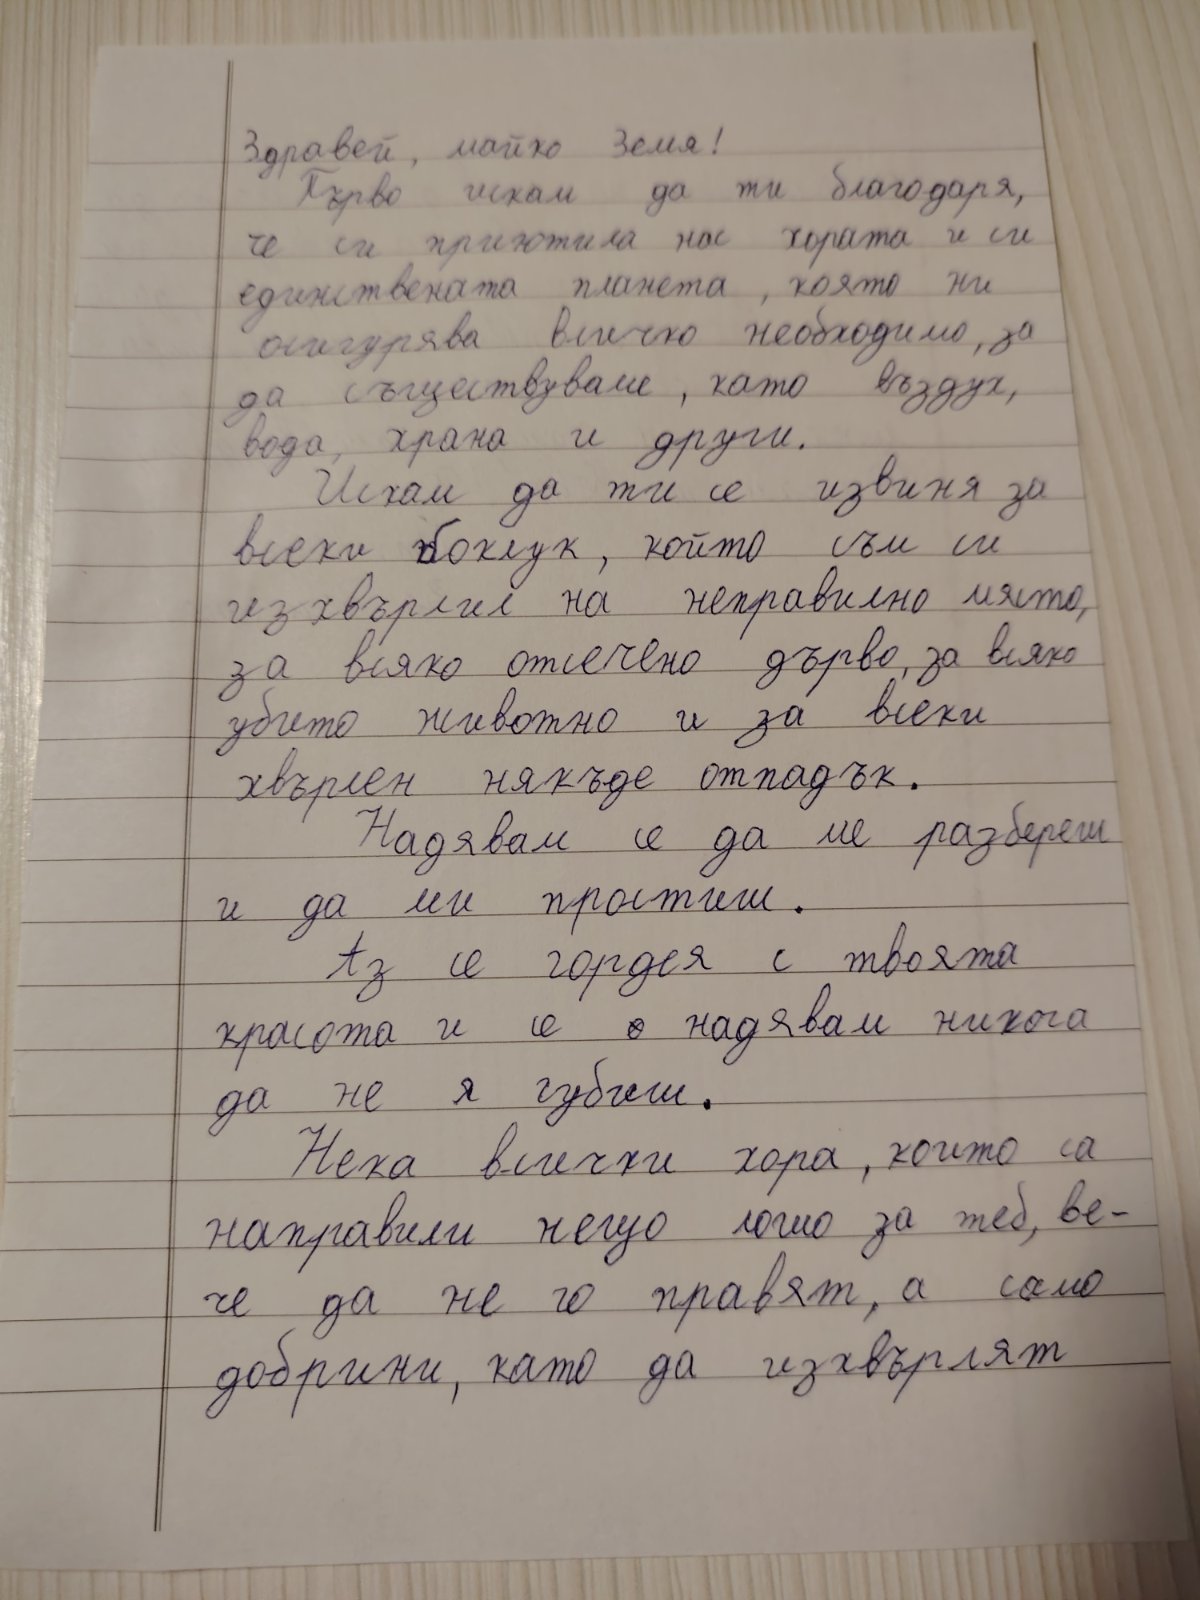 Здравей, майко Земя!
Първо искам да ти благодаря,
че си приютила нас хората и си
единствената планета, която ни
осигурява всичко необходимо, за
да съществуваме, като въздух,
вода, храна и други.
Искам да ти се извиня за
всеки боклук, който съм си
изхвърлил на неправилно място,
за всяко отсечено дърво, за всяко
убито животно и за всеки
хвърлен някъде отпадък.
Надявам се да ме разбереш
и да ми простиш.
Аз се гордея с твоята
красота и се надявам никога
да не я губиш.
Нека всички хора, които са
направили нещо лошо за теб, ве-
че да не го правят, а само
добрини, като да изхвърлят